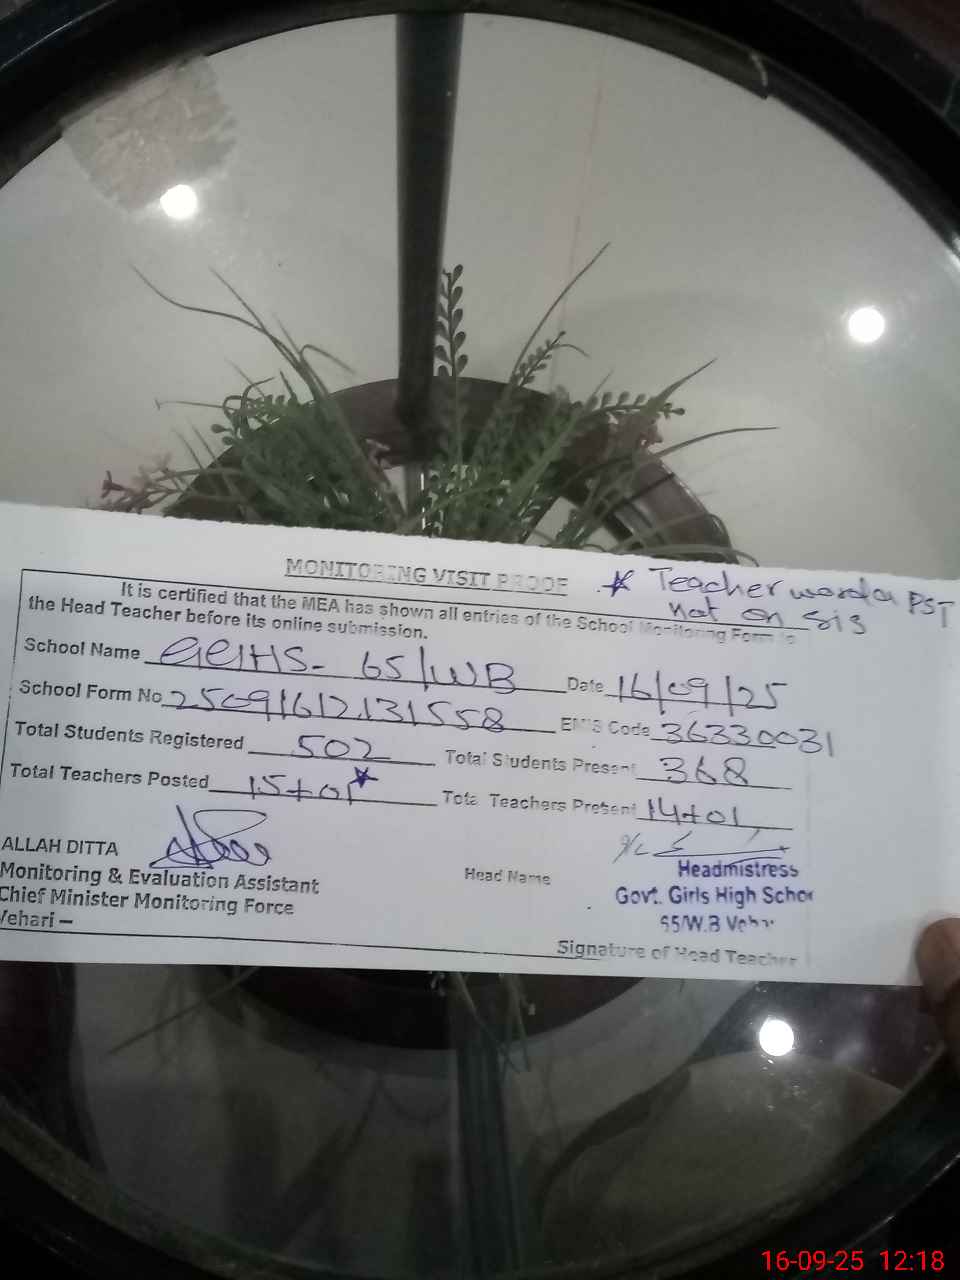 MONITORING VISIT PROOF
* Teacher PST
not on SIS
It is certified that the MEA has shown all entries of the School Monitoring Form to
the Head Teacher before its online submission.
School Name GGHS- 65/WB Date 16/09/25
School Form No 25091612131558 EMIS Code 36330031
Total Students Registered 502 Total Students Present 368
Total Teachers Posted 15+01* Total Teachers Present 14+01
ALLAH DITTA
Monitoring & Evaluation Assistant
Chief Minister Monitoring Force
Vehari –
Head Name
Headmistress
Govt. Girls High School
65/W.B Vehari
Signature of Head Teacher
16-09-25 12:18